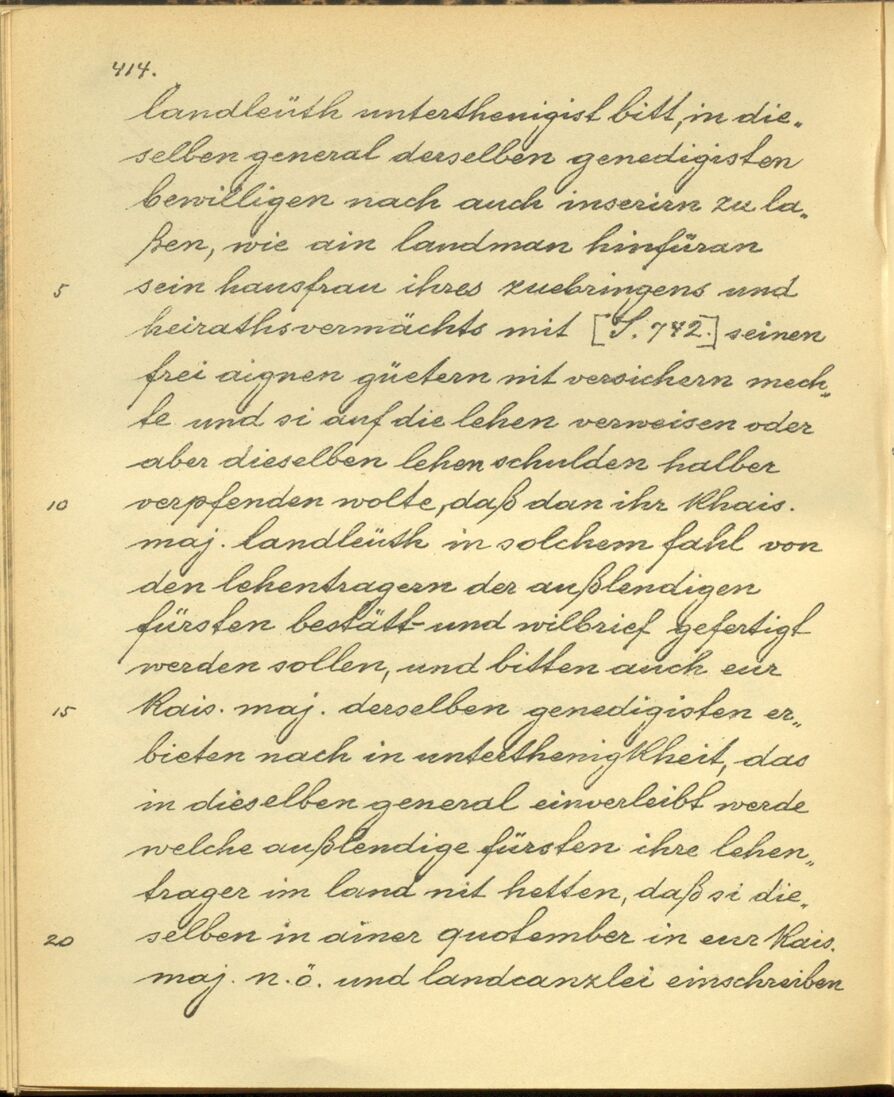 414.
landleüth unterthenigist bitt, in die„
selben general derselben genedigisten
bewilligen nach auch inserirn zu la„
ßen, wie ain landman hinfüran
5 sein hausfrau ihres zuebringens und
heirathsvermächts mit [S. 742.] seinen
frei aignen güetern nit versichern mech„
te und si auf die lehen verweisen oder
aber dieselben lehen schulden halber
10 verpfenden wolte, daß dan ihr khais.
maj. landleüth in solchem fahl von
den lehentragern der außlendigen
fürsten bestätt- und wilbrief gefertigt
werden sollen, und bitten auch eur
15 kais. maj. derselben genedigisten er„
bieten nach in unterthenigkheit, das
in dieselben general einverleibt werde
welche außlendige fürsten ihre lehen„
trager im land nit hetten, daß si die„
20 selben in ainer quotember in eur kais.
maj. n. ö. und landcanzlei einschreiben